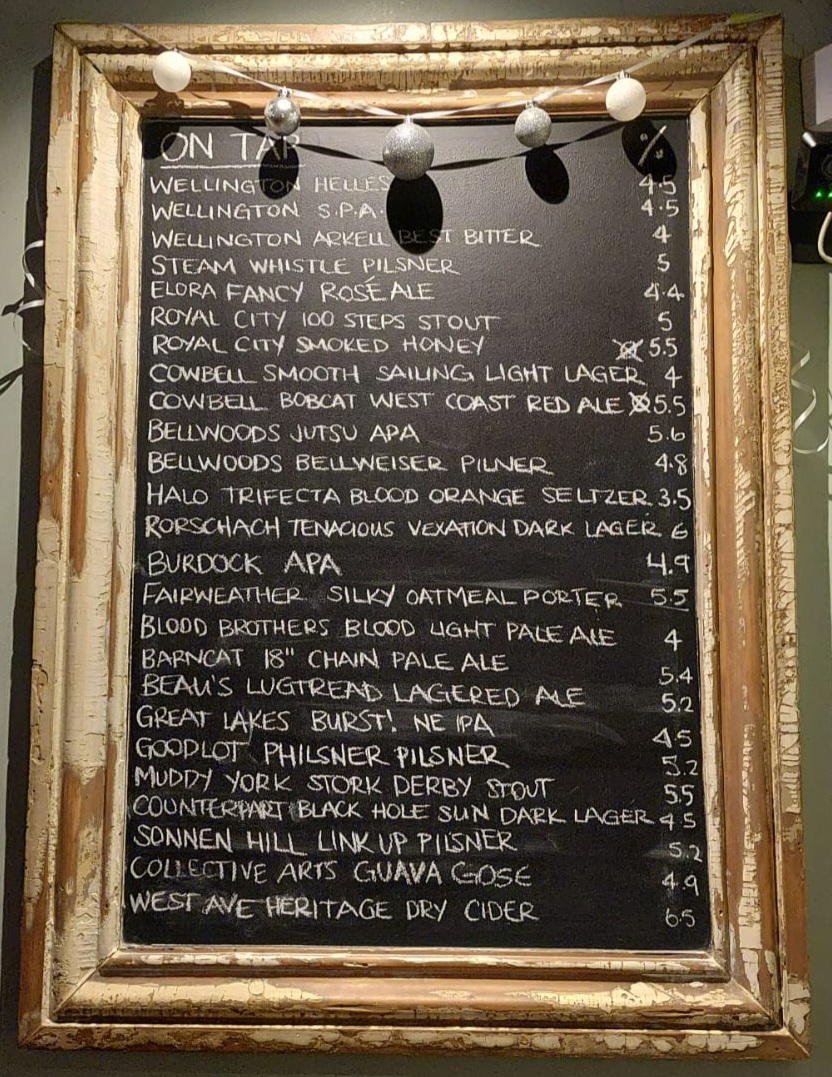 ON TAP %
WELLINGTON HELLES 4.5
WELLINGTON S.P.A. 4.5
WELLINGTON ARKELL BEST BITTER 4
STEAM WHISTLE PILSNER 5
ELORA FANCY ROSÉ ALE 4.4
ROYAL CITY 100 STEPS STOUT 5
ROYAL CITY SMOKED HONEY 5.5
COWBELL SMOOTH SAILING LIGHT LAGER 4
COWBELL BOBCAT WEST COAST RED ALE 5.5
BELLWOODS JUTSU APA 5.6
BELLWOODS BELLWEISER PILNER 4.8
HALO TRIFECTA BLOOD ORANGE SELTZER 3.5
RORSCHACH TENACIOUS VEXATION DARK LAGER 6
BURDOCK APA 4.9
FAIRWEATHER SILKY OATMEAL PORTER 5.5
BLOOD BROTHERS BLOOD LIGHT PALE ALE 4
BARNCAT 18" CHAIN PALE ALE 5.4
BEAU'S LUGTREAD LAGERED ALE 5.2
GREAT LAKES BURST! NE IPA 4.5
GOODLOT PHILSNER PILSNER 5.2
MUDDY YORK STORK DERBY STOUT 5.5
COUNTERPART BLACK HOLE SUN DARK LAGER 4.5
SONNEN HILL LINK UP PILSNER 5.2
COLLECTIVE ARTS GUAVA GOSE 4.9
WEST AVE HERITAGE DRY CIDER 6.5